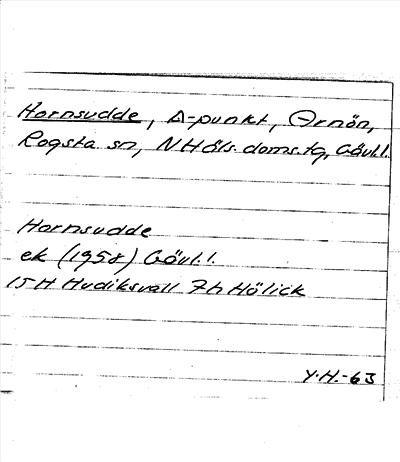 Hornsudde, Δ-punkt, Ornön,
Rogsta sn, N Häls. doms.tg, Gävl.l.
Hornsudde
ek (1958) Gävl.l.
15 H Hudiksvall 7h Hölick
Y.H.-63